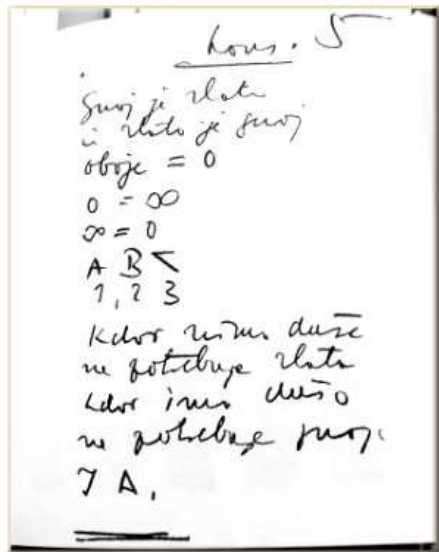 Kons. 5
Gnoj je zlato
in zlato je gnoj
oboje = 0
0 = ∞
∞ = 0
A B <
1, 2 3
Kdor nima duše
ne potrebuje zlata
kdor ima dušo
ne potrebuje gnoja.
I A.